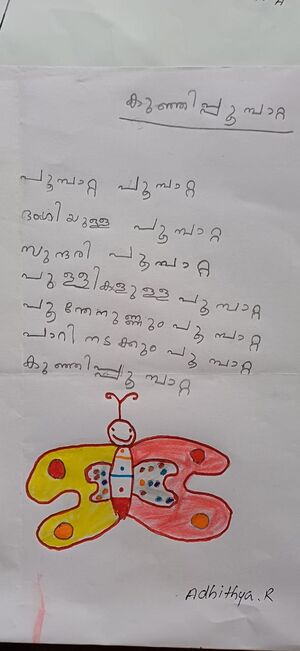 കുഞ്ഞിപ്പൂമ്പാറ്റ
പൂമ്പാറ്റ പൂമ്പാറ്റ
ഭംഗിയുള്ള പൂമ്പാറ്റ
സുന്ദരി പൂമ്പാറ്റ
പുള്ളികളുള്ള പൂമ്പാറ്റ
പൂന്തേനുണ്ണും പൂമ്പാറ്റ
പാറി നടക്കും പൂമ്പാറ്റ
കുഞ്ഞിപ്പൂമ്പാറ്റ
Adhithya.R